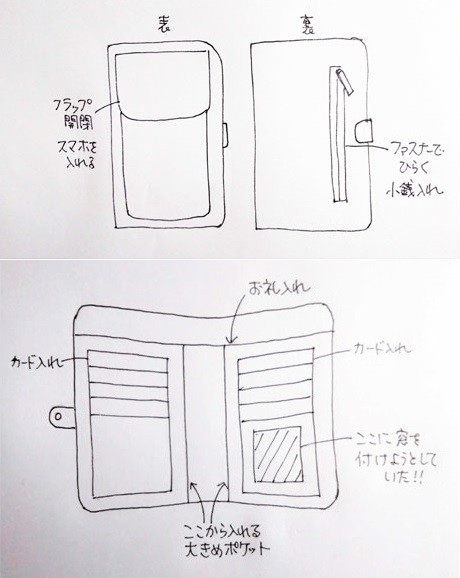 表
裏
フラップ
開閉
スマホを
入れる
ファスナーで
ひらく
小銭入れ
お札入れ
カード入れ
カード入れ
ここに窓を
付けようとして
いた!!
ここから入れる
大きめポケット